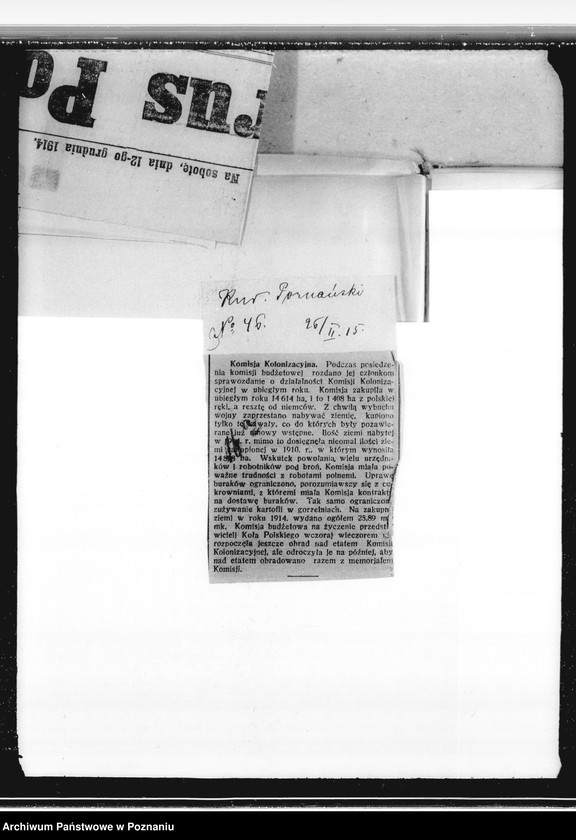 rus Po
Na sobotę, dnia 12-go grudnia 1914.
Kur. Poznański
No 46. 26/II. 15.
Komisja Kolonizacyjna. Podczas posiedze-
nia komisji budżetowej rozdano jej członkom
sprawozdanie o działalności Komisji Koloniza-
cyjnej w ubiegłym roku. Komisja zakupiła w
ubiegłym roku 14 614 ha, i to 1 408 ha z polskiej
ręki, a resztę od niemców. Z chwilą wybuchu
wojny zaprzestano nabywać ziemię, kupiono
tylko te kawały, co do których były pozawie-
rane już umowy wstępne. Ilość ziemi nabytej
w r. mimo to dosięgnęła nieomal ilości zie-
mi kupionej w 1910. r., w którym wynosiła
ha. Wskutek powołania wielu urzędni-
ków i robotników pod broń, Komisja miała po-
ważne trudności z robotami polnemi. Uprawę
buraków ograniczono, porozumiawszy się z cu-
krowniami, z któremi miała Komisja kontrakty
na dostawę buraków. Tak samo ograniczono
zużywanie kartofli w gorzelniach. Na zakupno
ziemi w roku 1914. wydano ogółem 25,89 m
mk. Komisja budżetowa na życzenie przedsta-
wicieli Koła Polskiego wczoraj wieczorem nie
rozpoczęła jeszcze obrad nad etatem Komisji
Kolonizacyjnej, ale odroczyła je na później, aby
nad etatem obradowano razem z memorjałem
Komisji.
Archiwum Państwowe w Poznaniu